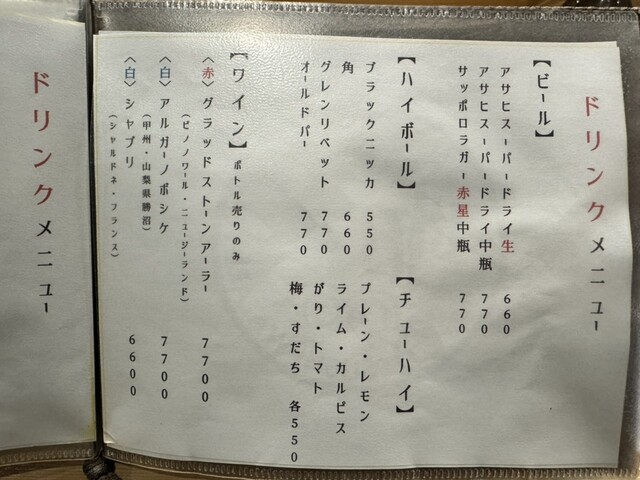 ドリンクメニュー
【ビール】
アサヒスーパードライ生 660
アサヒスーパードライ中瓶 770
サッポロラガー赤星中瓶 770
【ハイボール】
ブラックニッカ 550
角 660
グレンリベット 770
オールドパー 770
【チューハイ】
プレーン・レモン
ライム・カルピス
がり・トマト
梅・すだち 各550
【ワイン】ボトル売りのみ
〈赤〉グラッドストーンアーラー 7700
(ピノノワール・ニュージーランド)
〈白〉アルガーノボシケ 7700
(甲州・山梨県勝沼)
〈白〉シャブリ 6600
(シャルドネ・フランス)
ドリンクメニュー